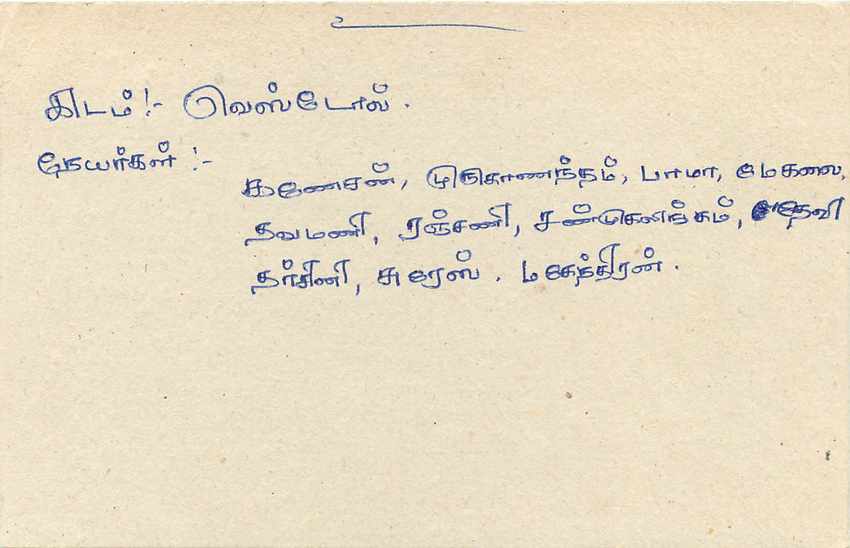 இடம் :- வெஸ்டோல்.
நேயர்கள் :-
கணேசன், முருகானந்தம், பாமா, மேகலை,
நவமணி, ரஞ்சனி, சண்முகலிங்கம், தேவி
தர்சினி, சுரேஸ். மகேந்திரன்.